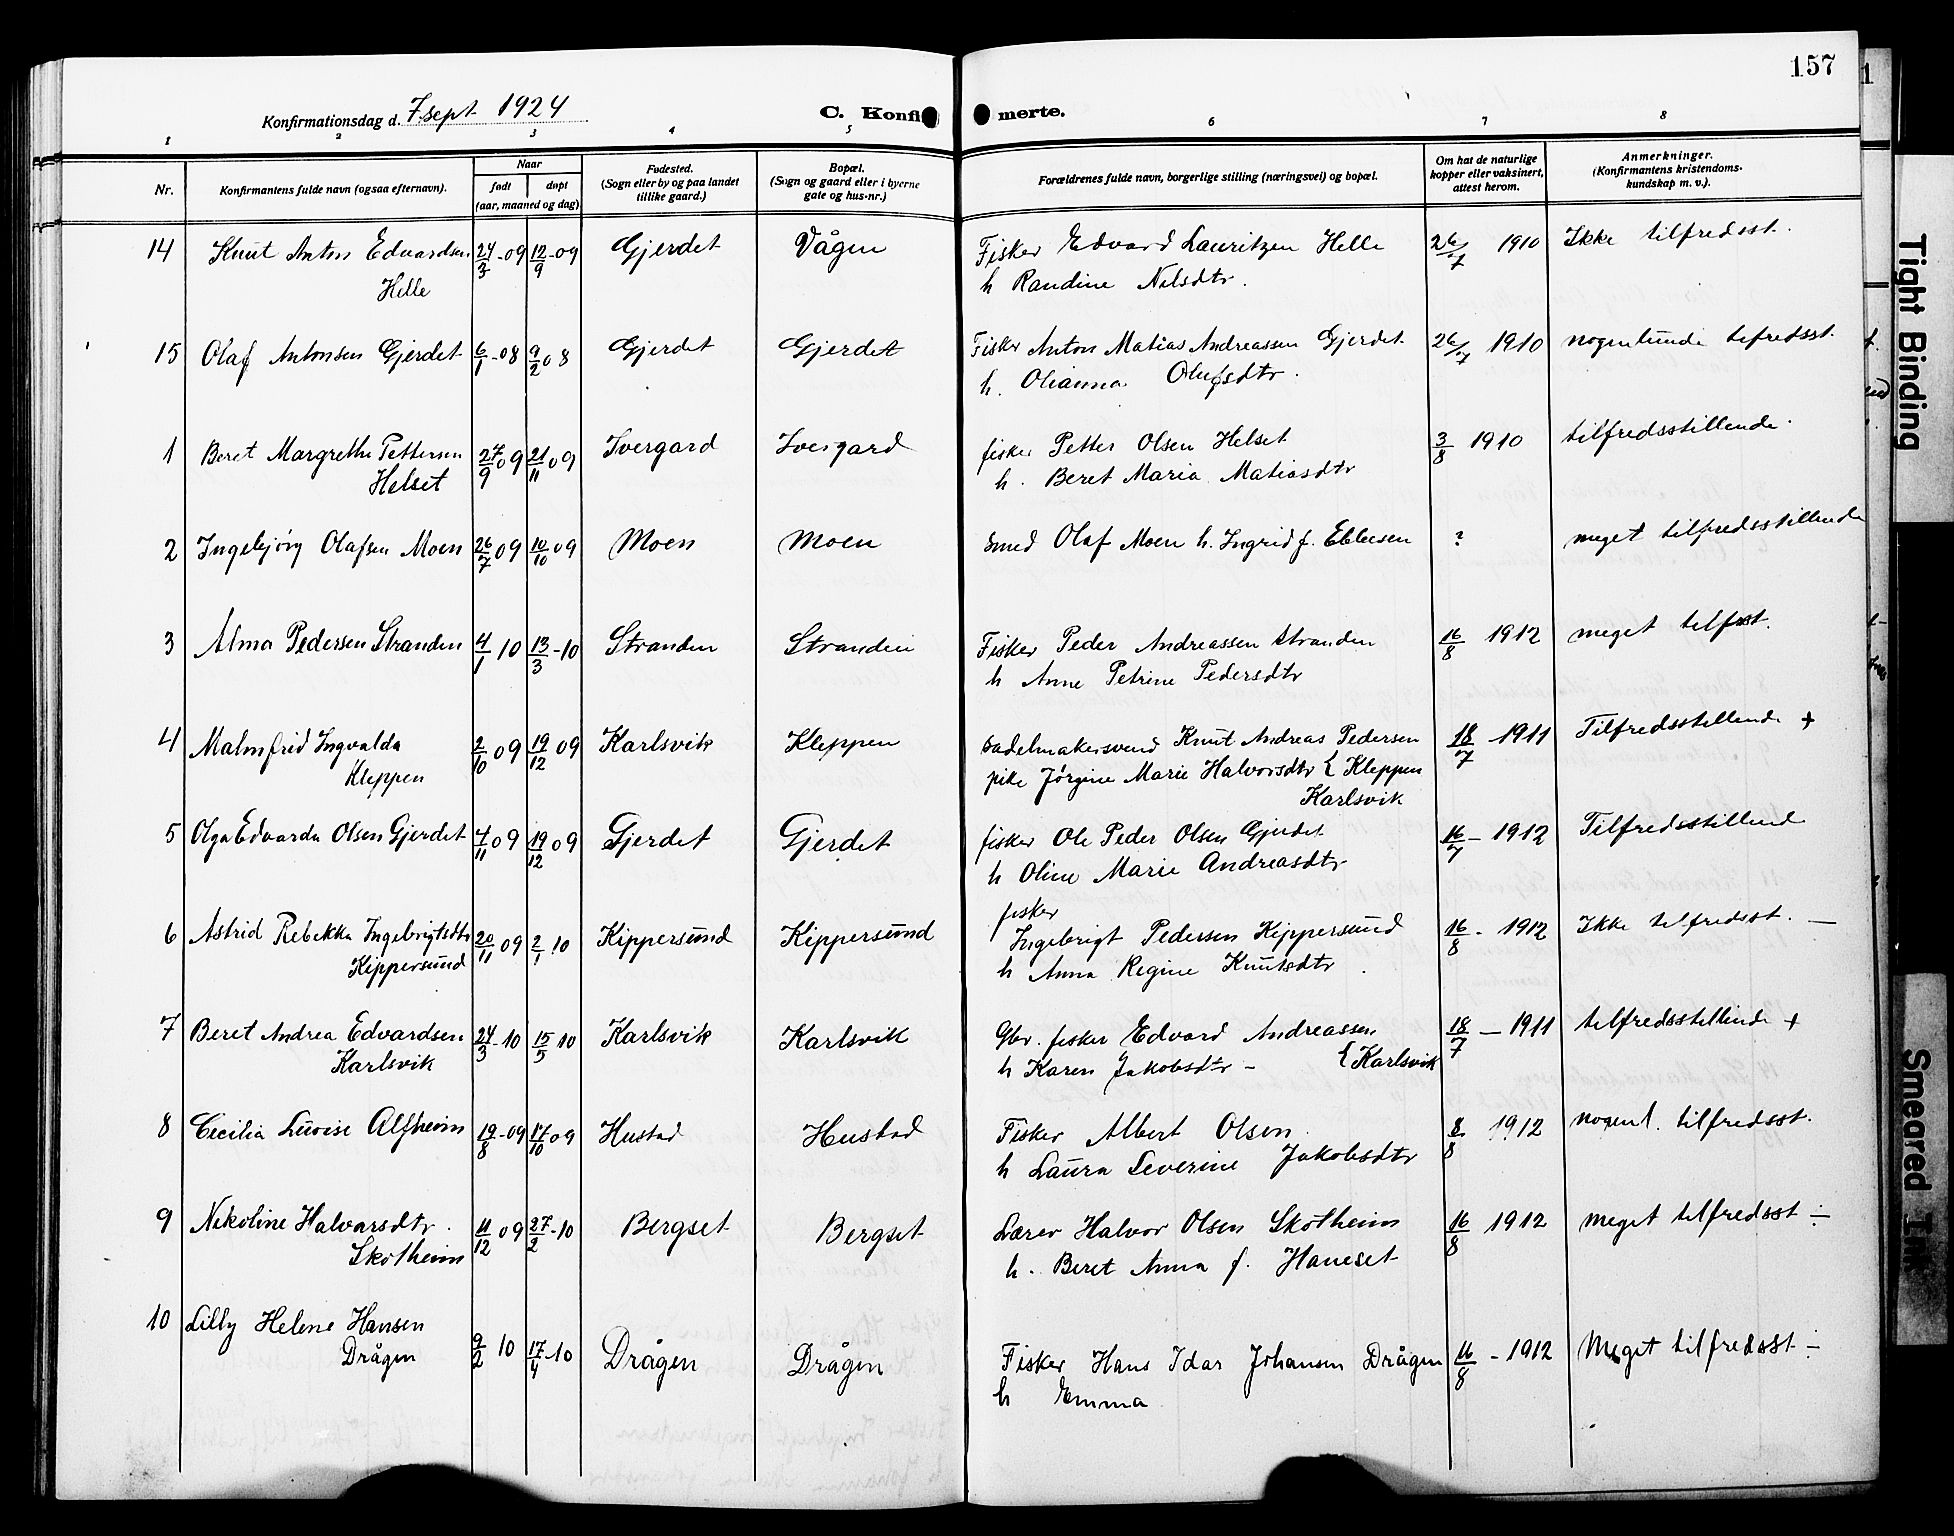 157
Konfirmationsdag d. 7. sept 1924
C. Konfi merte.
1 2 3 4 5 6 7 8
Nr.
Konfirmantens fulde navn (ogsaa efternavn).
Naar
født døpt
(aar, maaned og dag)
Fødested.
(Sogn eller by og paa landet
tillike gaard.)
Bopæl.
(Sogn og gaard eller i byerne
gate og hus-nr.)
Forældrenes fulde navn, borgerlige stilling (næringsvei) og bopæl.
Om hat de naturlige
kopper eller vaksinert,
attest herom.
Anmerkninger.
(Konfirmantens kristendoms-
kundskap m. v.).
14 Knut Anton Edvardsen 24/3-09 12/9-09 Gjerdet Vågen Fisker Edvard Lauritzen Helle 26/7 1910 Ikke tilfredsst.
Helle h Randine Nilsdtr.
15 Olaf Antonsen Gjerdet 6/1-08 9/2 08 Gjerdet Gjerdet Fisker Anton Matias Andreassen Gjerdet 26/7 1910 nogenlunde tefredsst.
h. Olianna Olufsdtr.
1 Beret Margrethe Pettersen 27/9 09 21/11 09 Ivergard Ivergard fisker Petter Olsen Helset 3/8 1910 tilfredsstillende.
Helset h. Beret Maria Matiasdtr
2 Ingebjørg Olafsen Moen 26/7 09 10/10 09 Moen Moen smed Olaf Moen h. Ingrid f. Ebbesen ? meget tilfredsstillende
3 Alma Pedersen Stranden 4/1 10 13/3-10 Stranden Stranden Fisker Peder Andreassen Stranden 16/8 1912 meget tilfrsst.
h Anne Petrine Pedersdtr
4 Malmfrid Ingvalda 2/10 09 19/12 09 Karlsvik Kleppen sadelmakersvend Knut Andreas Pedersen 18/7 - 1911 Tilfredsstillende +
Kleppen pike Jørgine Marie Halvorsdtr { Kleppen
Karlsvik
5 Olga Edvarda Olsen Gjerdet 4/11 09 19/12 09 Gjerdet Gjerdet fisker Ole Peder Olsen Gjerdet 16/7 - 1912 Tilfredsstillend
h Oline Marie Andreasdtr
fisker
6 Astrid Rebekka Ingebrigtsdtr 20/11 09 2/1 10 Kippersund Kippersund Ingebrigt Pedersen Kippersund 16/8 - 1912 Ikke tilfredsst. —
Kippersund h Anna Regine Knutsdtr.
7 Beret Andrea Edvardsen 24/3-10 15/5 10 Karlsvik Karlsvik Gbr. fisker Edvard Andreassen 18/7 — 1911 tilfredsstillende +
Karlsvik h Karen Jakobsdtr - { Karlsvik
8 Cecilia Lovise Alfheim 19/8-09 17/10 09 Hustad Hustad Fisker Albert Olsen 8/8 1912 nogenl. tilfredsst.
h Laura Severine Jakobsdtr
9 Nikoline Halvarsdtr. 11/12 09 27/2-10 Bergset Bergset Lærer Halvor Olsen Skotheim 16/8 1912 meget tilfredsst ÷
Skotheim h. Beret Anna f. Haneset
10 Lilly Helene Hansen
Drågen 9/2 10 17/4-10 Drågen Drågen Fisker Hans Idar Johansen Drågen 16/8 - 1912 Meget tilfredsst ÷
h Emma
Tight Binding
Smeared Ink